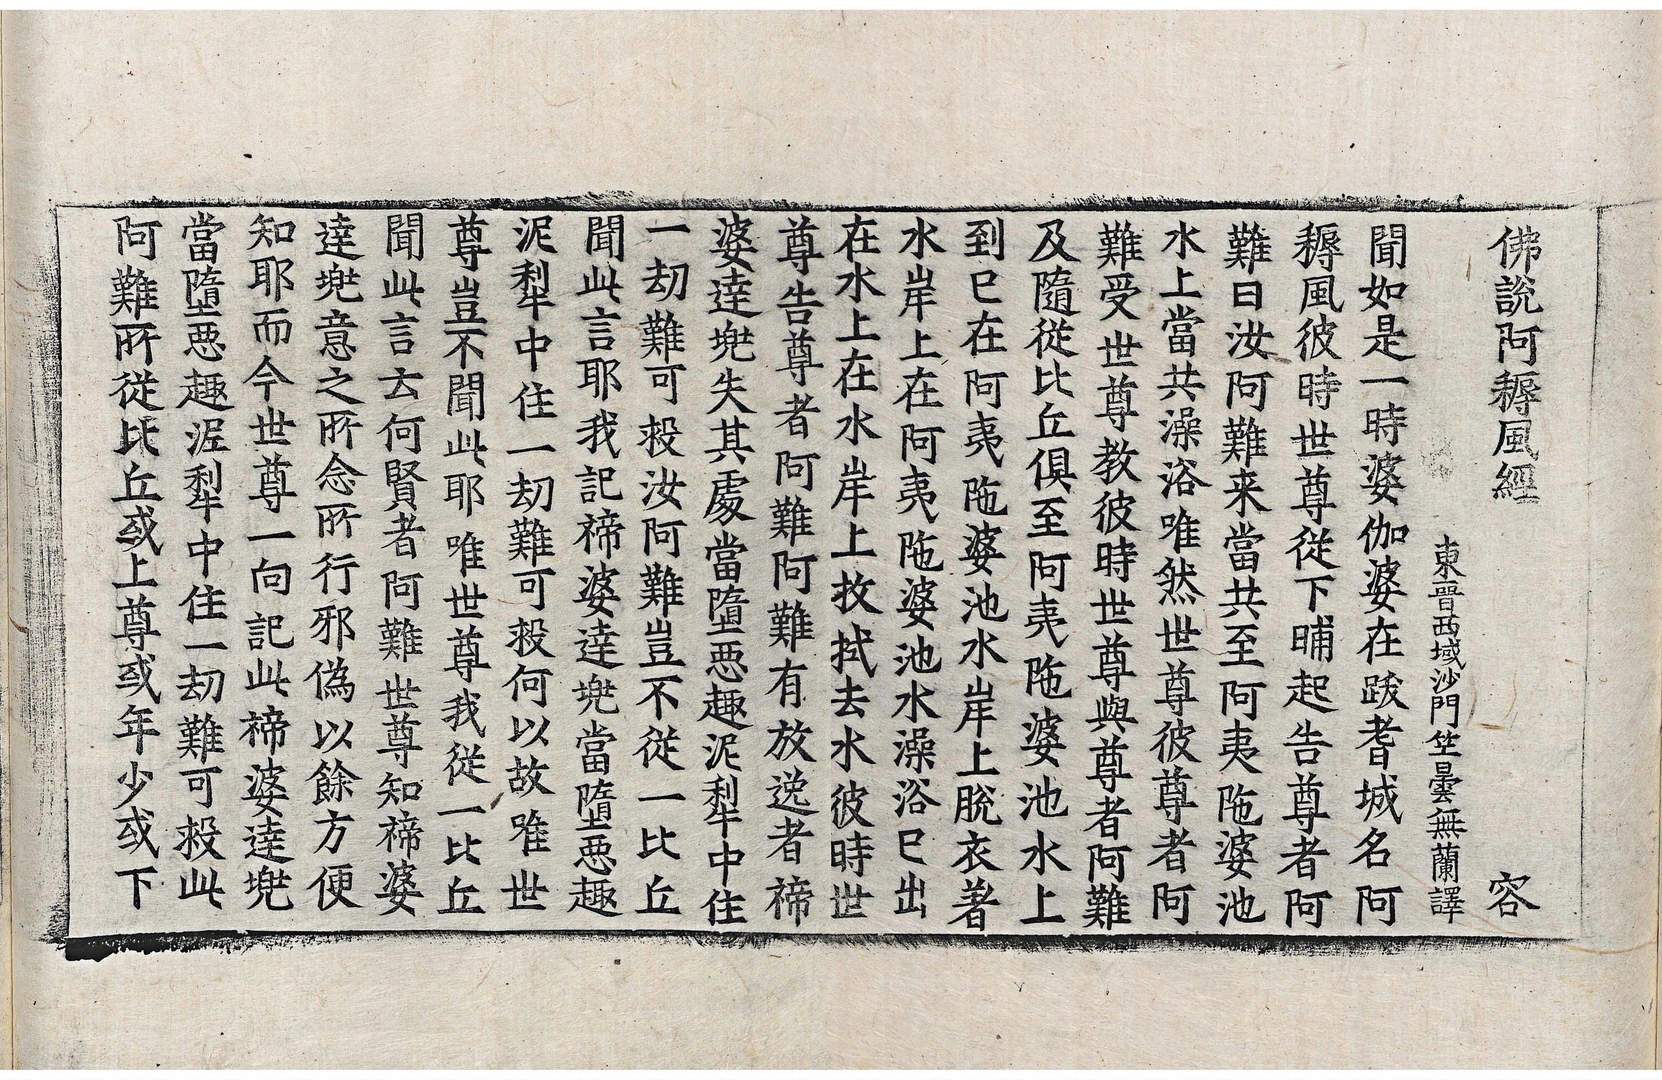 佛說阿耨風經 容
東晉西域沙門竺曇無蘭譯
聞如是一時婆伽婆在跋耆城名阿
耨風彼時世尊從下晡起告尊者阿
難曰汝阿難来當共至阿夷陁婆池
水上當共澡浴唯然世尊彼尊者阿
難受世尊教彼時世尊與尊者阿難
及隨從比丘俱至阿夷陁婆池水上
到已在阿夷陁婆池水岸上脫衣著
水岸上在阿夷陁婆池水澡浴已出
在水上在水岸上抆拭去水彼時世
尊告尊者阿難阿難有放逸者禘
婆達兠失其處當墮惡趣泥犁中住
一劫難可救汝阿難豈不從一比丘
聞此言耶我記禘婆達兠當墮惡趣
泥犁中住一劫難可救何以故唯世
尊豈不聞此耶唯世尊我從一比丘
聞此言云何賢者阿難世尊知禘婆
達兠意之所念所行邪偽以餘方便
知耶而今世尊一向記此禘婆達兠
當墮惡趣泥犁中住一劫難可救此
阿難所從比丘或上尊或年少或下